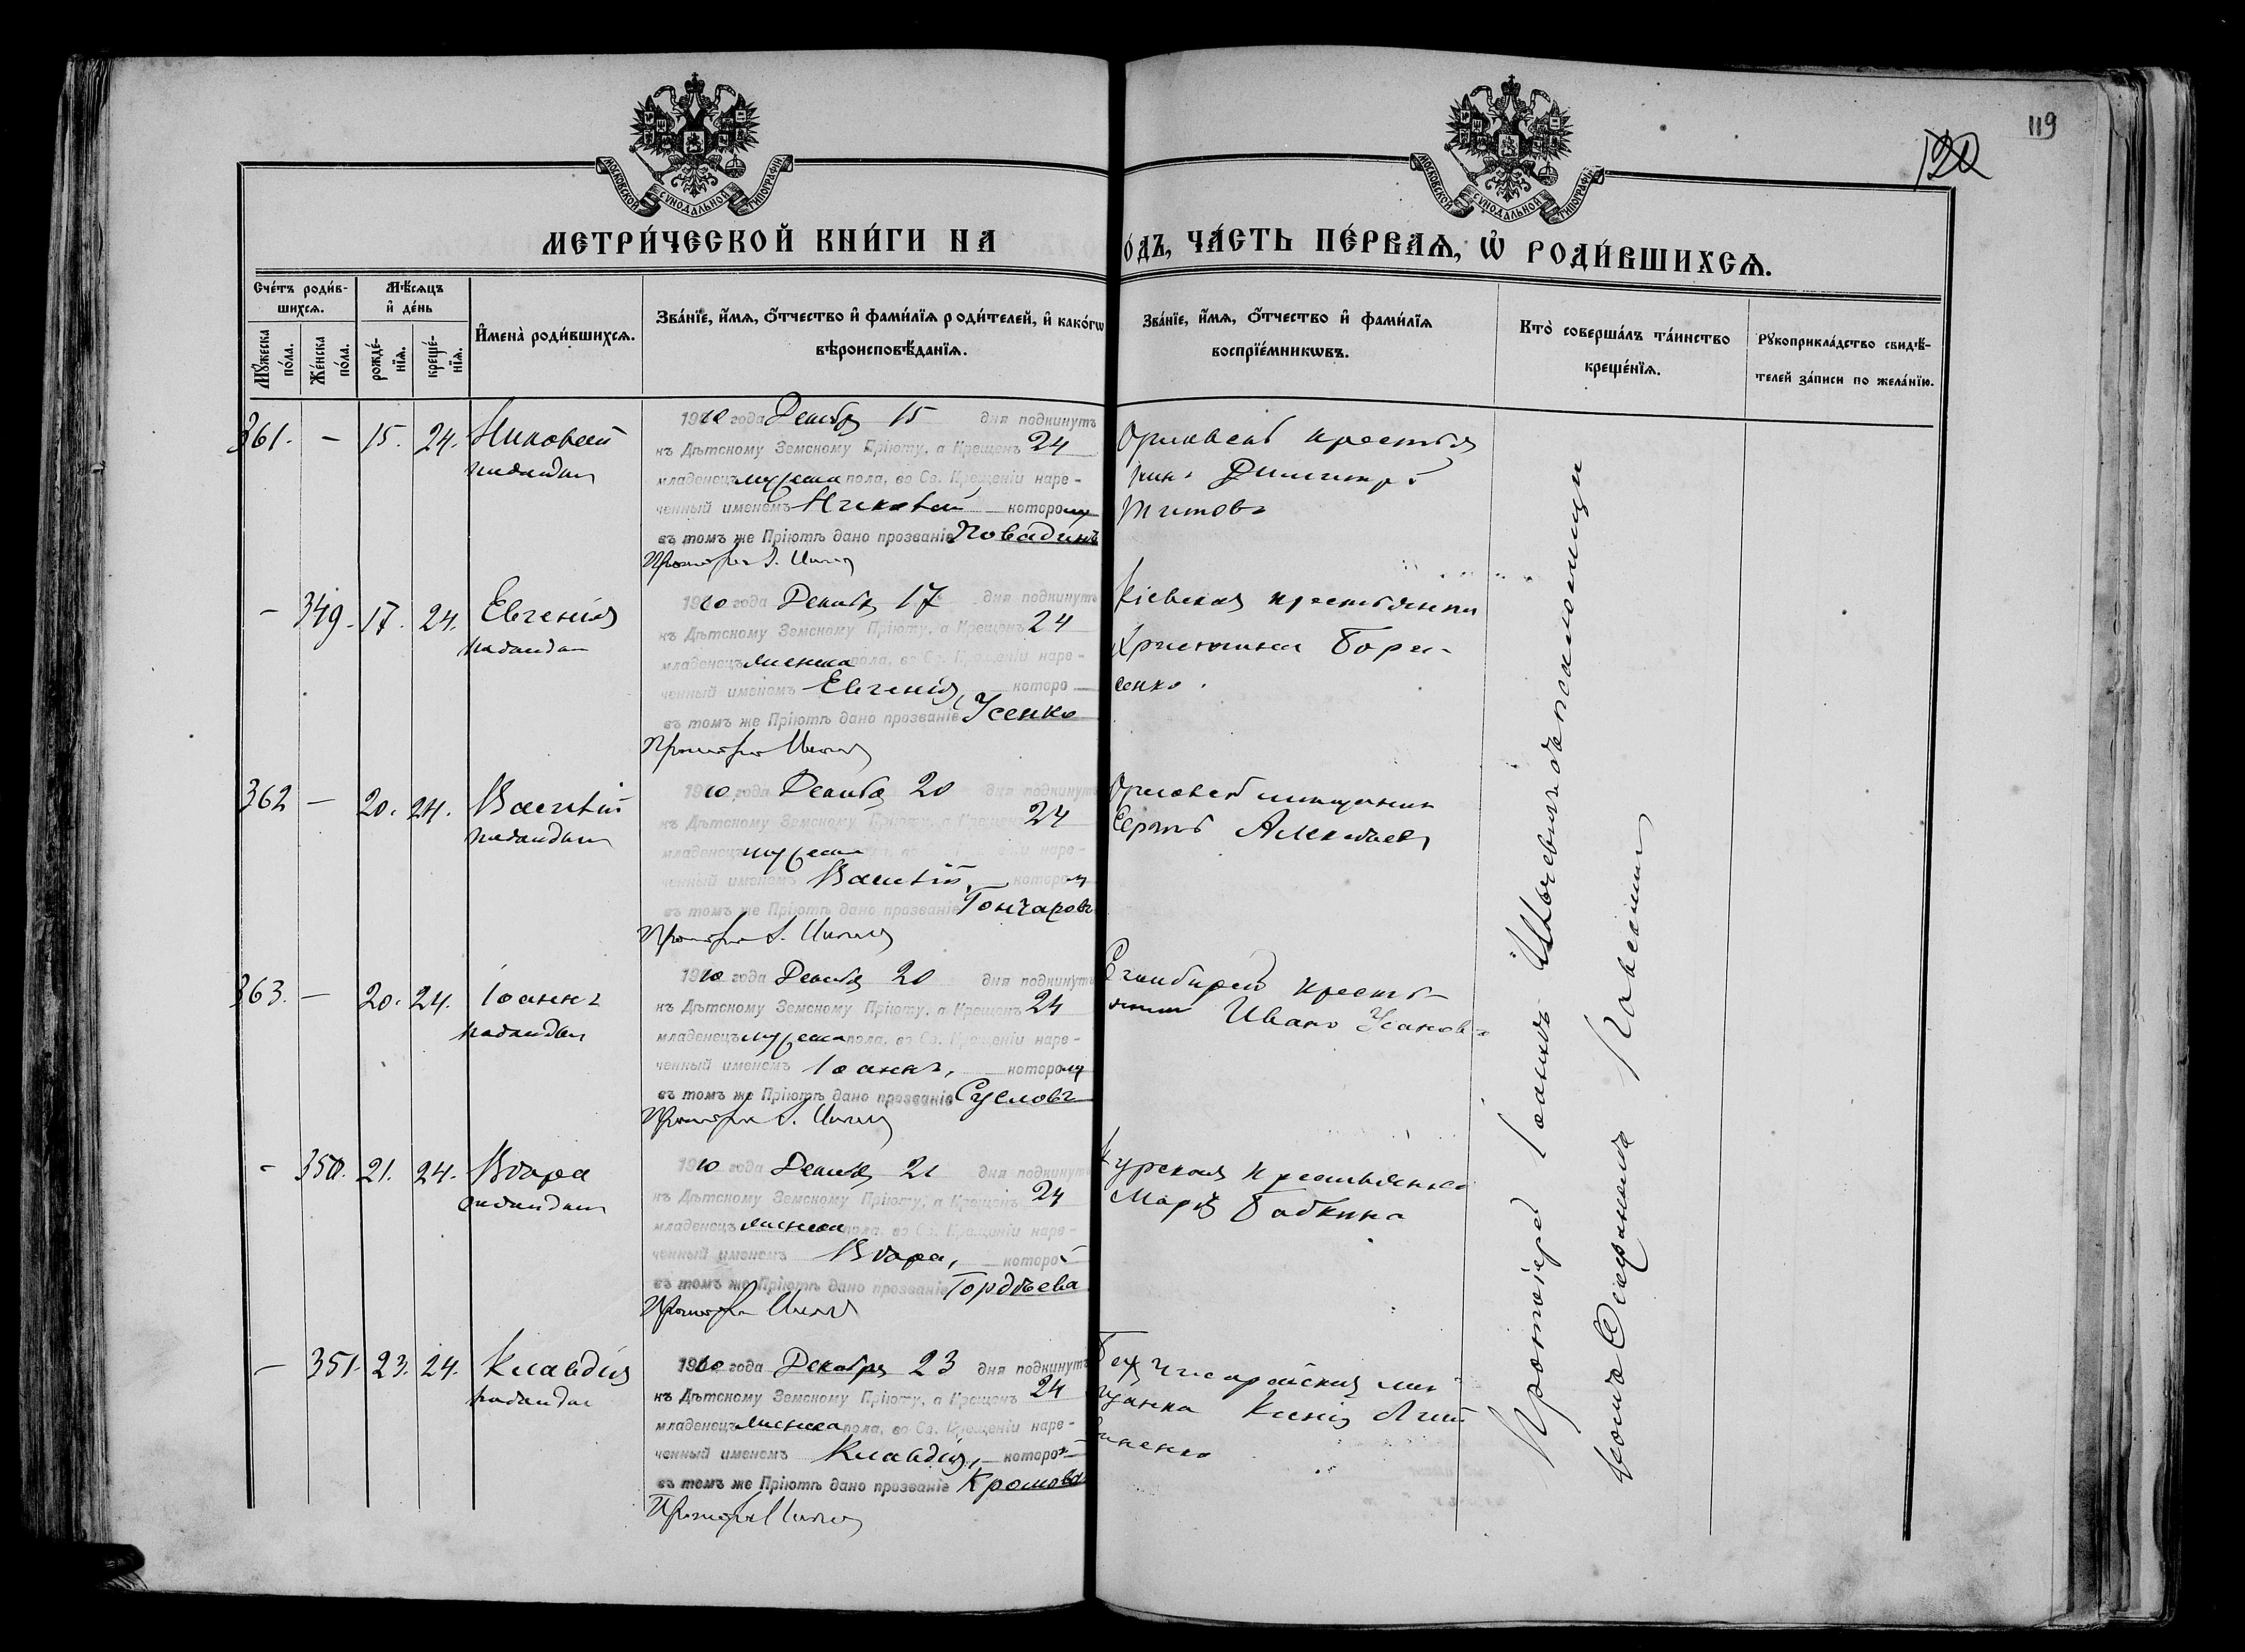 119
120
МОСКОВСКОЙ СѴНОДАЛЬНОЙ ТИПОГРАФІИ
МОСКОВСКОЙ СѴНОДАЛЬНОЙ ТИПОГРАФІИ
МЕТРИ́ЧЕСКОЙ КНИ́ГИ НА
О́ДЪ, ЧА́СТЬ ПЕ́РВАѦ, Ѡ҆ РОДИ́ВШИХСѦ.
Сче́тъ роди́в-
шихсѧ.
Мѣ́сѧцъ
и҆ де́нь
Мꙋ́жеска
по́ла.
Же́нска
по́ла.
рожде́-
нїѧ.
креще́-
нїѧ.
И҆мена̀ роди́вшихсѧ.
Зва́нїе, и҆́мѧ, ѻ҆́тчество и҆ фами́лїѧ роди́телей, и҆ како́гѡ
вѣроисповѣ́данїѧ.
Зва́нїе, и҆́мѧ, ѻ҆́тчество и҆ фами́лїѧ
воспрїе́мникѡвъ.
Кто̀ соверша́лъ та́инство
креще́нїѧ.
Рꙋкоприкла́дство свидѣ́-
телей за́писи по жела́нїю.
361. — 15. 24. Николай
1910 года Декабря 15 дня подкинутъ
къ Дѣтскому Земскому Пріюту, а Крещенъ 24
младенецъ мужеска пола, во Св. Крещеніи наре-
ченный именемъ Николай которому
въ томъ же Пріютѣ дано прозваніе Повадинъ
Орловскій крестья
нинъ Димитрій
Титовъ
— 349. 17. 24. Евгенія
1910 года Декабря 17 дня подкинутъ
къ Дѣтскому Земскому Пріюту, а Крещенъ 24
младенецъ женска пола, во Св. Крещеніи наре-
ченный именемъ Евгенія, которо
въ томъ же Пріютѣ дано прозваніе Усенко
Кіевская крестьянка
Христина Бори-
сенко.
362 — 20. 24. Василій
1910 года Декабря 20 дня подкинутъ
къ Дѣтскому Земскому Пріюту, а Крещенъ 24
младенецъ мужеска наре-
ченный именемъ Василій, которому
въ томъ же Пріютѣ дано прозваніе Гончаровъ
Орловскій мѣщанинъ
Сергѣй Алексѣевъ
363. — 20. 24. Іоаннъ
1910 года Декабря 20 дня подкинутъ
къ Дѣтскому Земскому Пріюту, а Крещенъ 24
младенецъ мужеска пола, во Св. Крещеніи наре-
ченный именемъ Іоаннъ, которому
въ томъ же Пріютѣ дано прозваніе Сусловъ
Симбирскій кресть-
янинъ Иванъ Усановъ
— 350. 21. 24. Вѣра
1910 года Декабря 21 дня подкинутъ
къ Дѣтскому Земскому Пріюту, а Крещенъ 24
младенецъ женска пола, во Св. Крещеніи наре-
ченный именемъ Вѣра, которой
въ томъ же Пріютѣ дано прозваніе Гордѣева
Курская крестьянка
Марія Бабкина
— 351. 23. 24. Клавдія
1910 года Декабря 23 дня подкинутъ
къ Дѣтскому Земскому Пріюту, а Крещенъ 24
младенецъ женска пола, во Св. Крещеніи наре-
ченный именемъ Клавдія, которой
въ томъ же Пріютѣ дано прозваніе Кромова
мѣ
щанка Ксенія
Протоіерей Іоаннъ съ псаломщи
комъ